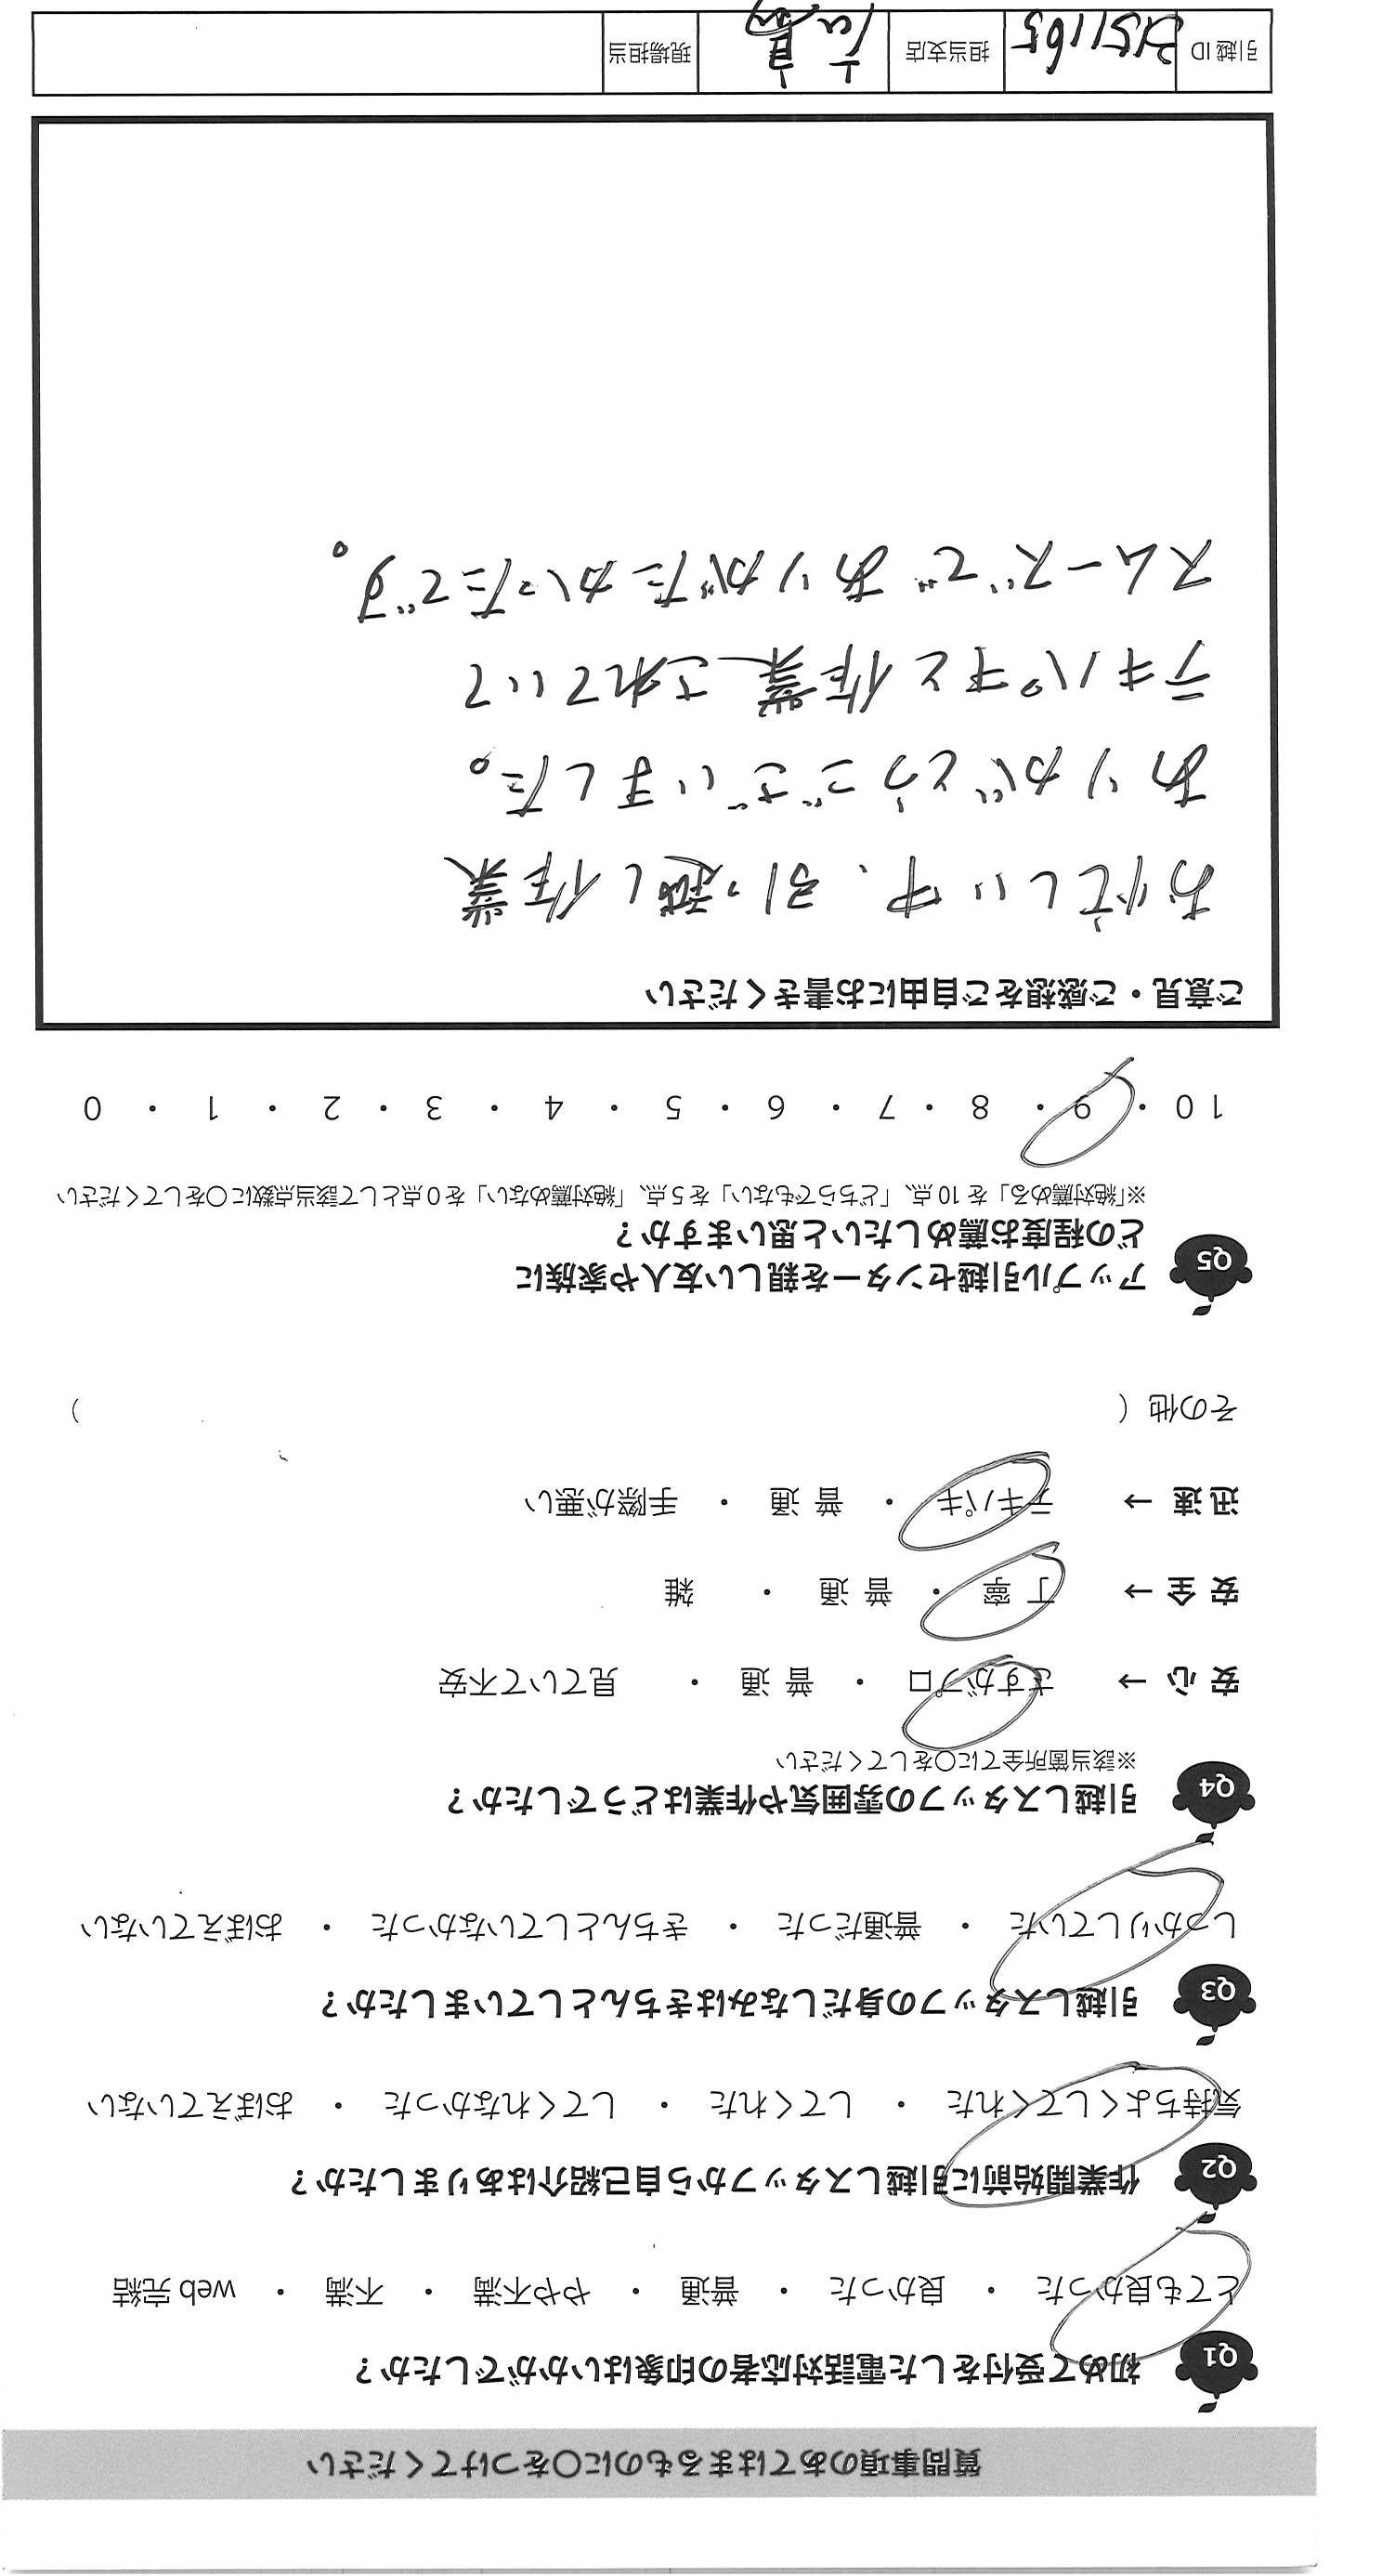 質問事項のあてはまるものに〇をつけてください
Q1 初めて受付をした電話対応者の印象はいかがでしたか？
とても良かった ・ 良かった ・ 普通 ・ やや不満 ・ 不満 ・ web 完結
Q2 作業開始前に引越しスタッフから自己紹介はありましたか？
気持ちよくしてくれた ・ してくれた ・ してくれなかった ・ おぼえていない
Q3 引越しスタッフの身だしなみはきちんとしていましたか？
しっかりしていた ・ 普通だった ・ きちんとしていなかった ・ おぼえていない
Q4 引越しスタッフの雰囲気や作業はどうでしたか？
※該当箇所全てに〇をしてください
安 心 → さすがプロ ・ 普 通 ・ 見ていて不安
安 全 → 丁 寧 ・ 普 通 ・ 雑
迅 速 → テキパキ ・ 普 通 ・ 手際が悪い
その他（ ）
Q5 アップル引越センターを親しい友人や家族に
どの程度お薦めしたいと思いますか？
※「絶対薦める」を 10 点、「どちらでもない」を 5 点、「絶対薦めない」を 0 点として該当点数に〇をしてください
10 ・ 9 ・ 8 ・ 7 ・ 6 ・ 5 ・ 4 ・ 3 ・ 2 ・ 1 ・ 0
ご意見・ご感想をご自由にお書きください
お忙しい中、引っ越し作業
ありがとうございました。
テキパキと作業されていて
スムーズでありがたかったです。
引越 ID 2151165 担当支店 現場担当